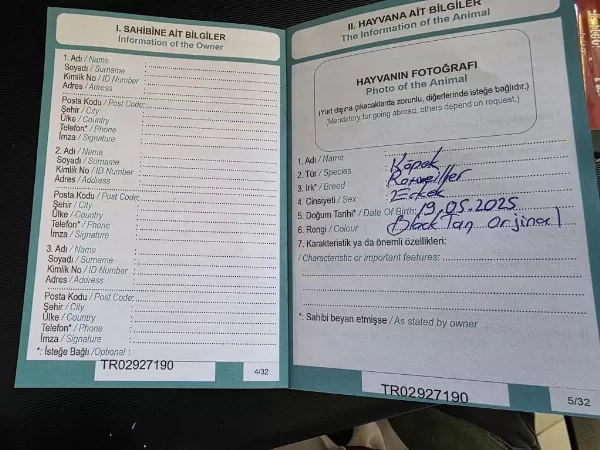 I. SAHİBİNE AİT BİLGİLER
Information of the Owner
1. Adı / Name
Soyadı / Surname
Kimlik No / ID Number
Adres / Address
Posta Kodu / Post Code:
Şehir / City
Ülke / Country
Telefon* / Phone
İmza / Signature
2. Adı / Name
Soyadı / Surname
Kimlik No / ID Number
Adres / Address
Posta Kodu / Post Code:
Şehir / City
Ülke / Country
Telefon* / Phone
İmza / Signature
3. Adı / Name
Soyadı / Surname
Kimlik No / ID Number
Adres / Address
Posta Kodu / Post Code:
Şehir / City
Ülke / Country
Telefon* / Phone
İmza / Signature
*: İsteğe Bağlı / Optional :
TR02927190
4/32
II. HAYVANA AİT BİLGİLER
The Information of the Animal
HAYVANIN FOTOĞRAFI
Photo of the Animal
(Yurt dışına çıkacaklarda zorunlu, diğerlerinde isteğe bağlıdır.)
(Mandatory for going abroad, others depend on request.)
1. Adı / Name
2. Tür / Species Köpek
3. Irk* / Breed Rotweiller
4. Cinsiyeti / Sex Erkek
5. Doğum Tarihi* / Date Of Birth: 19.05.2025
6. Rengi / Colour Black Tan Orjinal
7. Karakteristik ya da önemli özellikleri:
/ Characteristic or important features:
*: Sahibi beyan etmişse / As stated by owner
TR02927190
5/32